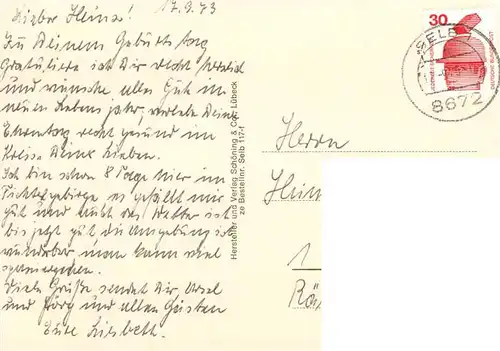 Lieber Heinz! 17.9.73
Zu Deinem Geburtstag
Gratuliere ich Dir recht herzlich
und wünsche alles Gute im
neuen Lebensjahr, verlebe Deine
Ehrentag recht gesund im
Kreise Deine Lieben.
Ich bin schon 8 Tage hier im
Fichtelgebirge es gefällt mir
gut und auch das Wetter ist
bis jetzt gut die Umgebung ist
wunderbar man kann viel
Viele Grüße sendet Dir, Ursel
und Jörg und allen Gästen
Eure Liesbeth.
Hersteller und Verlag Schöning & Co., Lübeck
ze Bestellnr. Selb 117-f
30
DEUTSCHE BUNDESPOST
SELB
8672
Herrn
Hein
1